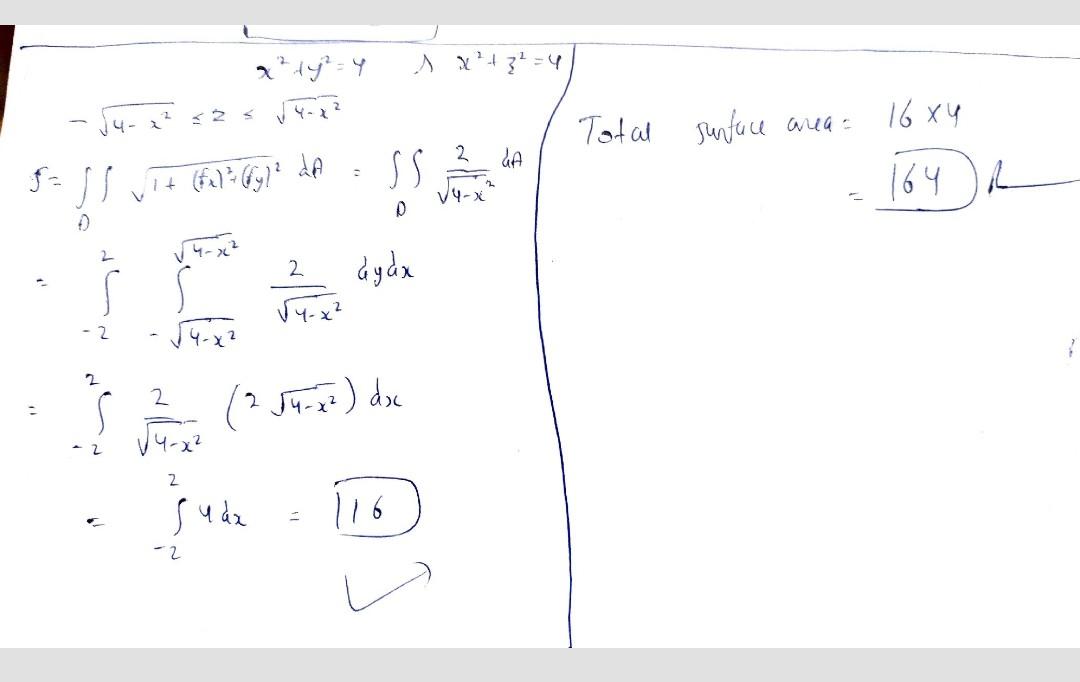 x² + y² = 4 x² + z² = 4
- √4-x² ≤ z ≤ √4-x²
S = ∫∫ √1 + (fx)² + (fy)² dA = ∫∫ 2/√4-x² dA
D D
= ∫ -2 2 ∫ -√4-x² √4-x² 2/√4-x² dydx
= ∫ -2 2 2/√4-x² (2 √4-x²) dx
= ∫ -2 2 4 dx = 16
Total surface area = 16 x 4
= 164